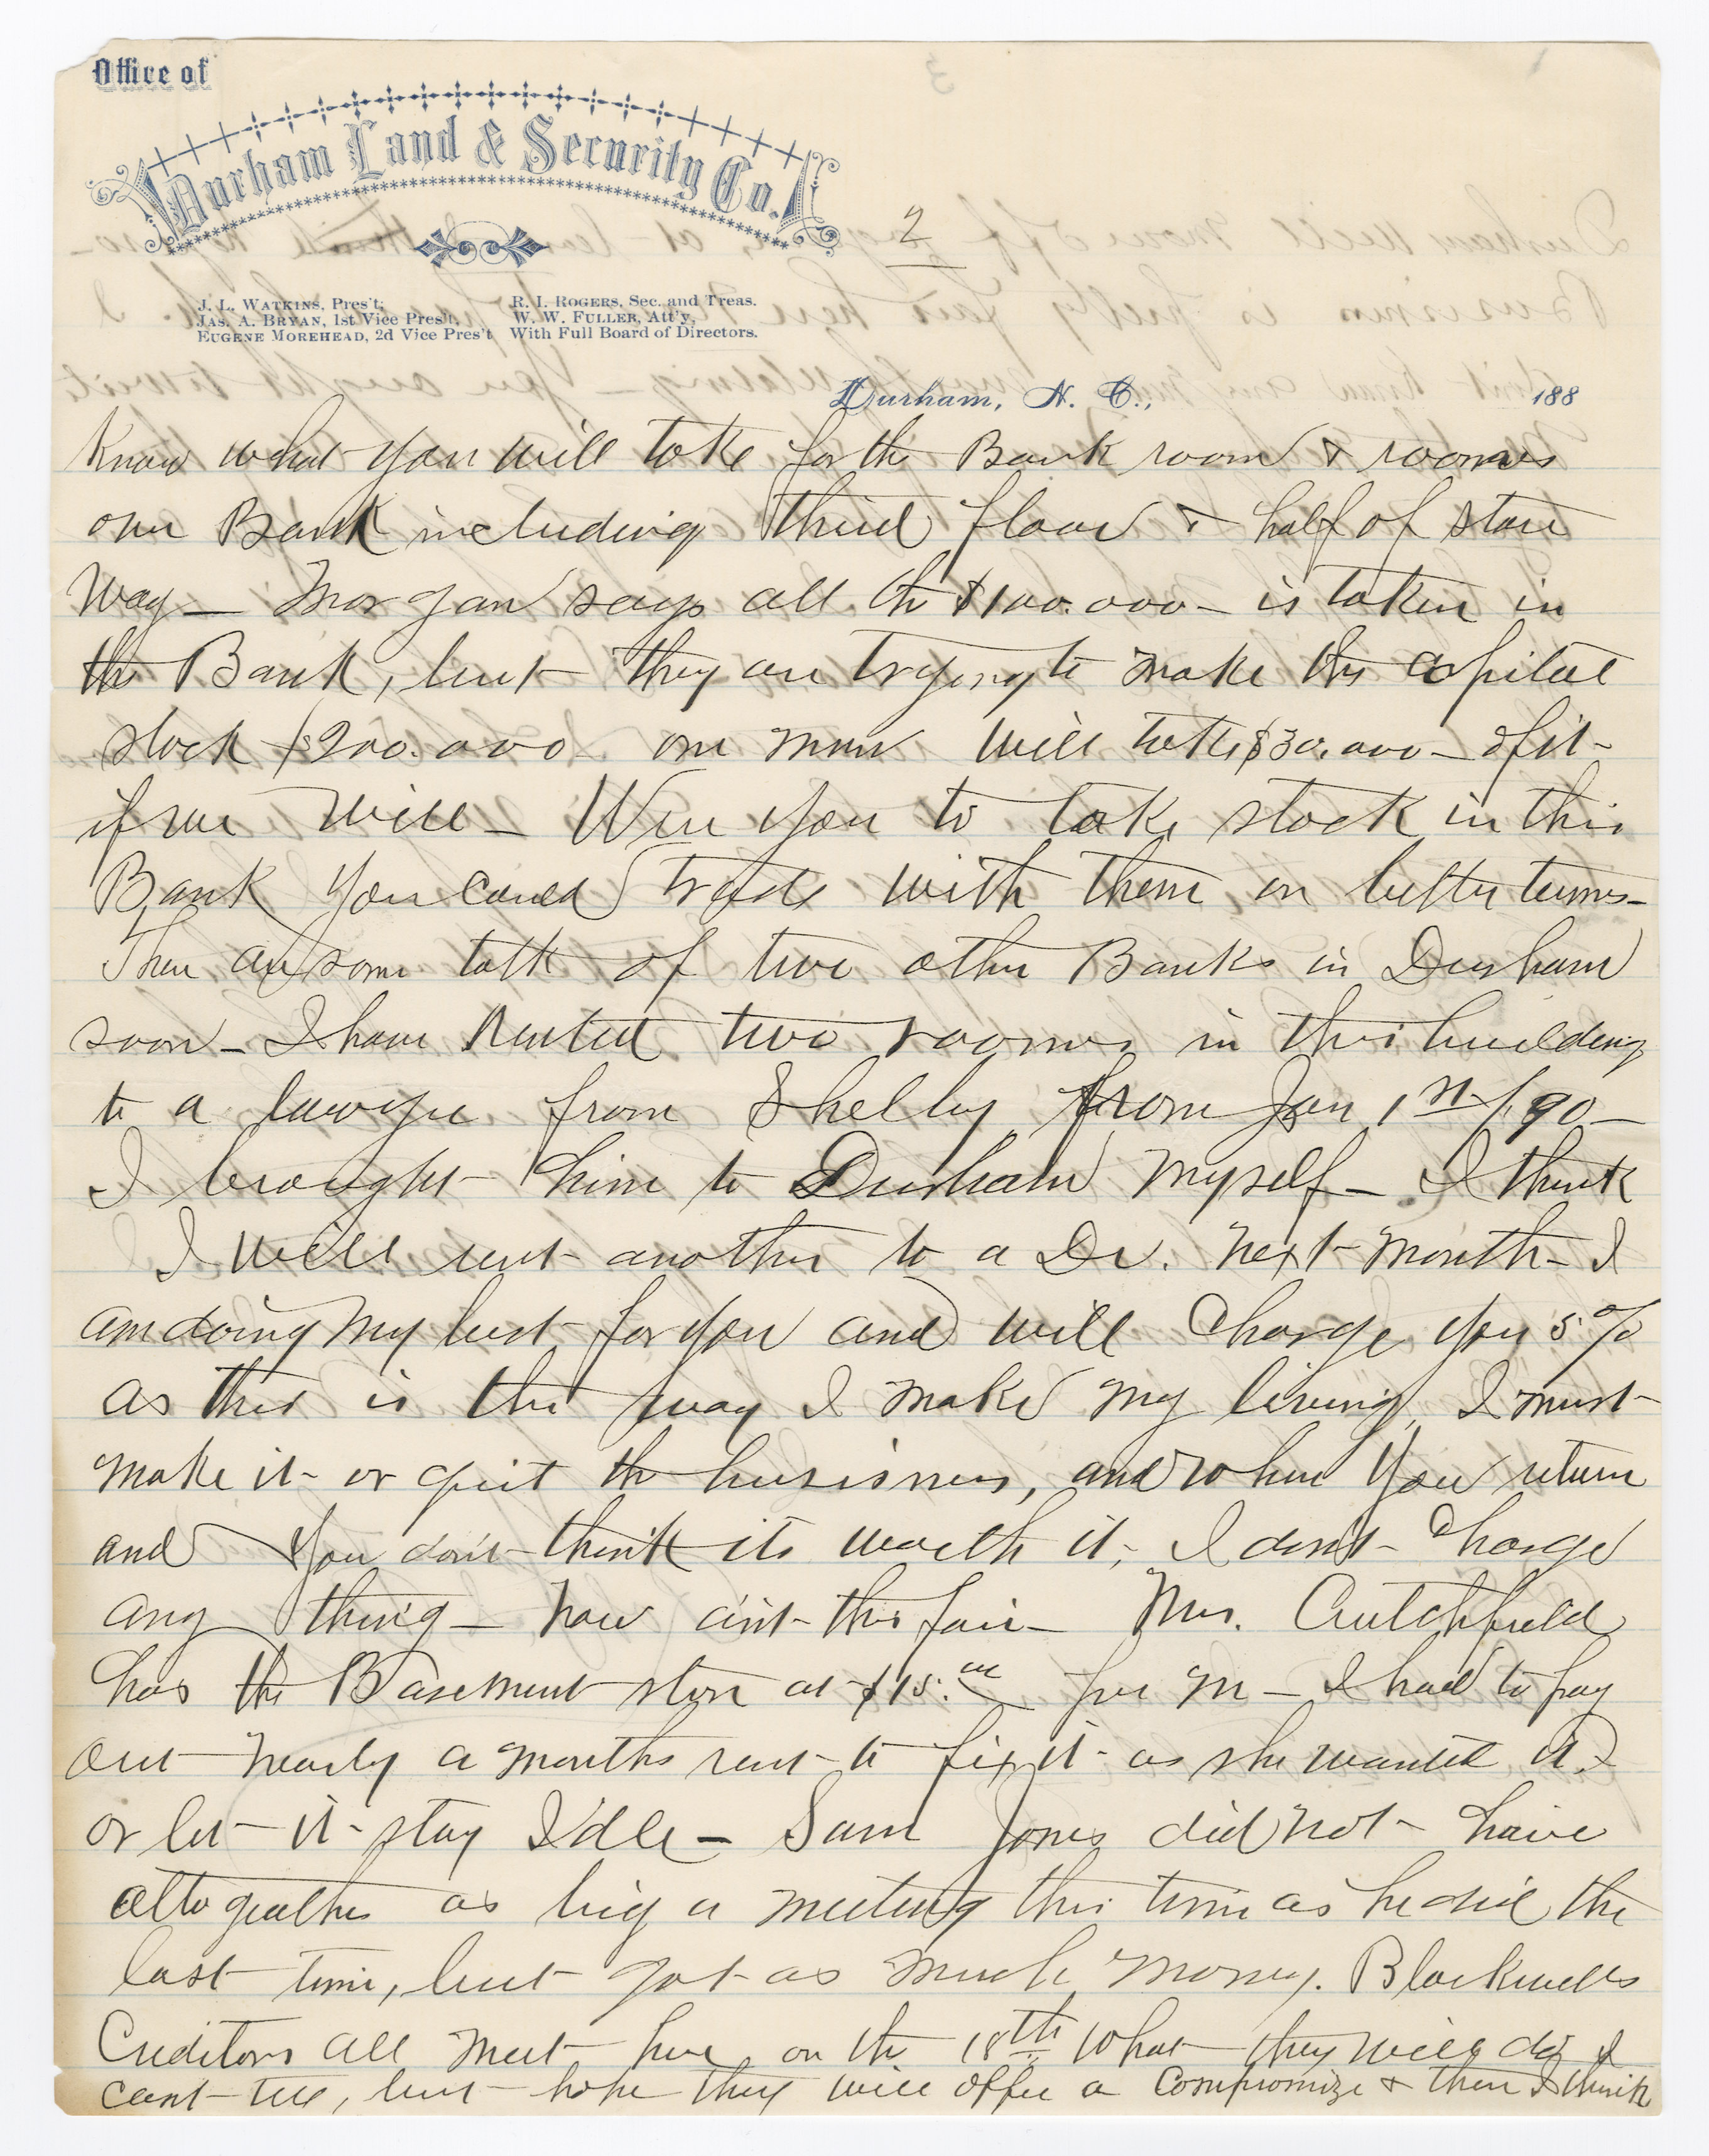 Office of
Durham Land & Security Co.
2
J. L. WATKINS, Pres't;
JAS. A. BRYAN, 1st Vice Pres't,
EUGENE MOREHEAD, 2d Vice Pres't
R. I. ROGERS, Sec. and Treas.
W. W. FULLER, Att'y,
With Full Board of Directors.
Durham, N. C., 188
Know what you will take for the Bank room & rooms
over Bank including third floor & half of stair
way — Morgan says all the $100.000 — is taken in
the Bank, but they are trying to make the capital
stock $200.000 one man will take $30.000 — of it —
if we will — Were you to take stock in this
Bank you could trade with them on better terms —
There are some talk of two other Banks in Durham
soon — I have Rented two rooms in this building
to a lawyer from Shelby from Jan 1st /90 —
I brought him to Durham myself — I think
I will rent another to a Dr. next month — I
am doing my best for you and will charge you 5%
as this is the way I make my living, I must
make it or quit the business, and when you return
and you don't think its worth it, I don't charge
any thing — now aint this fair — Mrs. Crutchfield
has the Basement store at $15.00 per m — I had to pay
out nearly a months rent to fix it as she wanted it
or let it stay Idle — Sam Jones did not have
altogeather as big a meeting this time as he did the
last time, but got as much money. Blackwells
Creditors all meet here on the 18th What they will do I
cant tell, but hope they will offer a Compromize & then I think